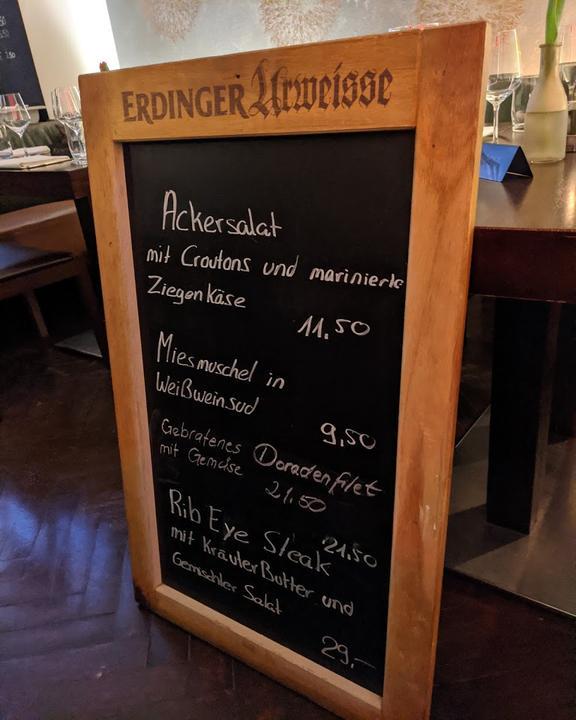 ERDINGER Urweisse
Ackersalat
mit Croutons und marinierte
Ziegenkäse
11,50
Miesmuschel in
Weißweinsud
9,50
Gebratenes Doradenfilet
mit Gemüse
21.50
Rib Eye Steak 21.50
mit Kräuter Butter und
Gemischter Salat
29,-